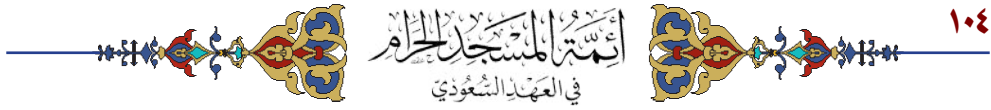 ١٠٤
أَئِمَّةُ الْمَسْجِدِ الْحَرَامِ
فِي الْعَهْدِ السُّعُودِيِّ